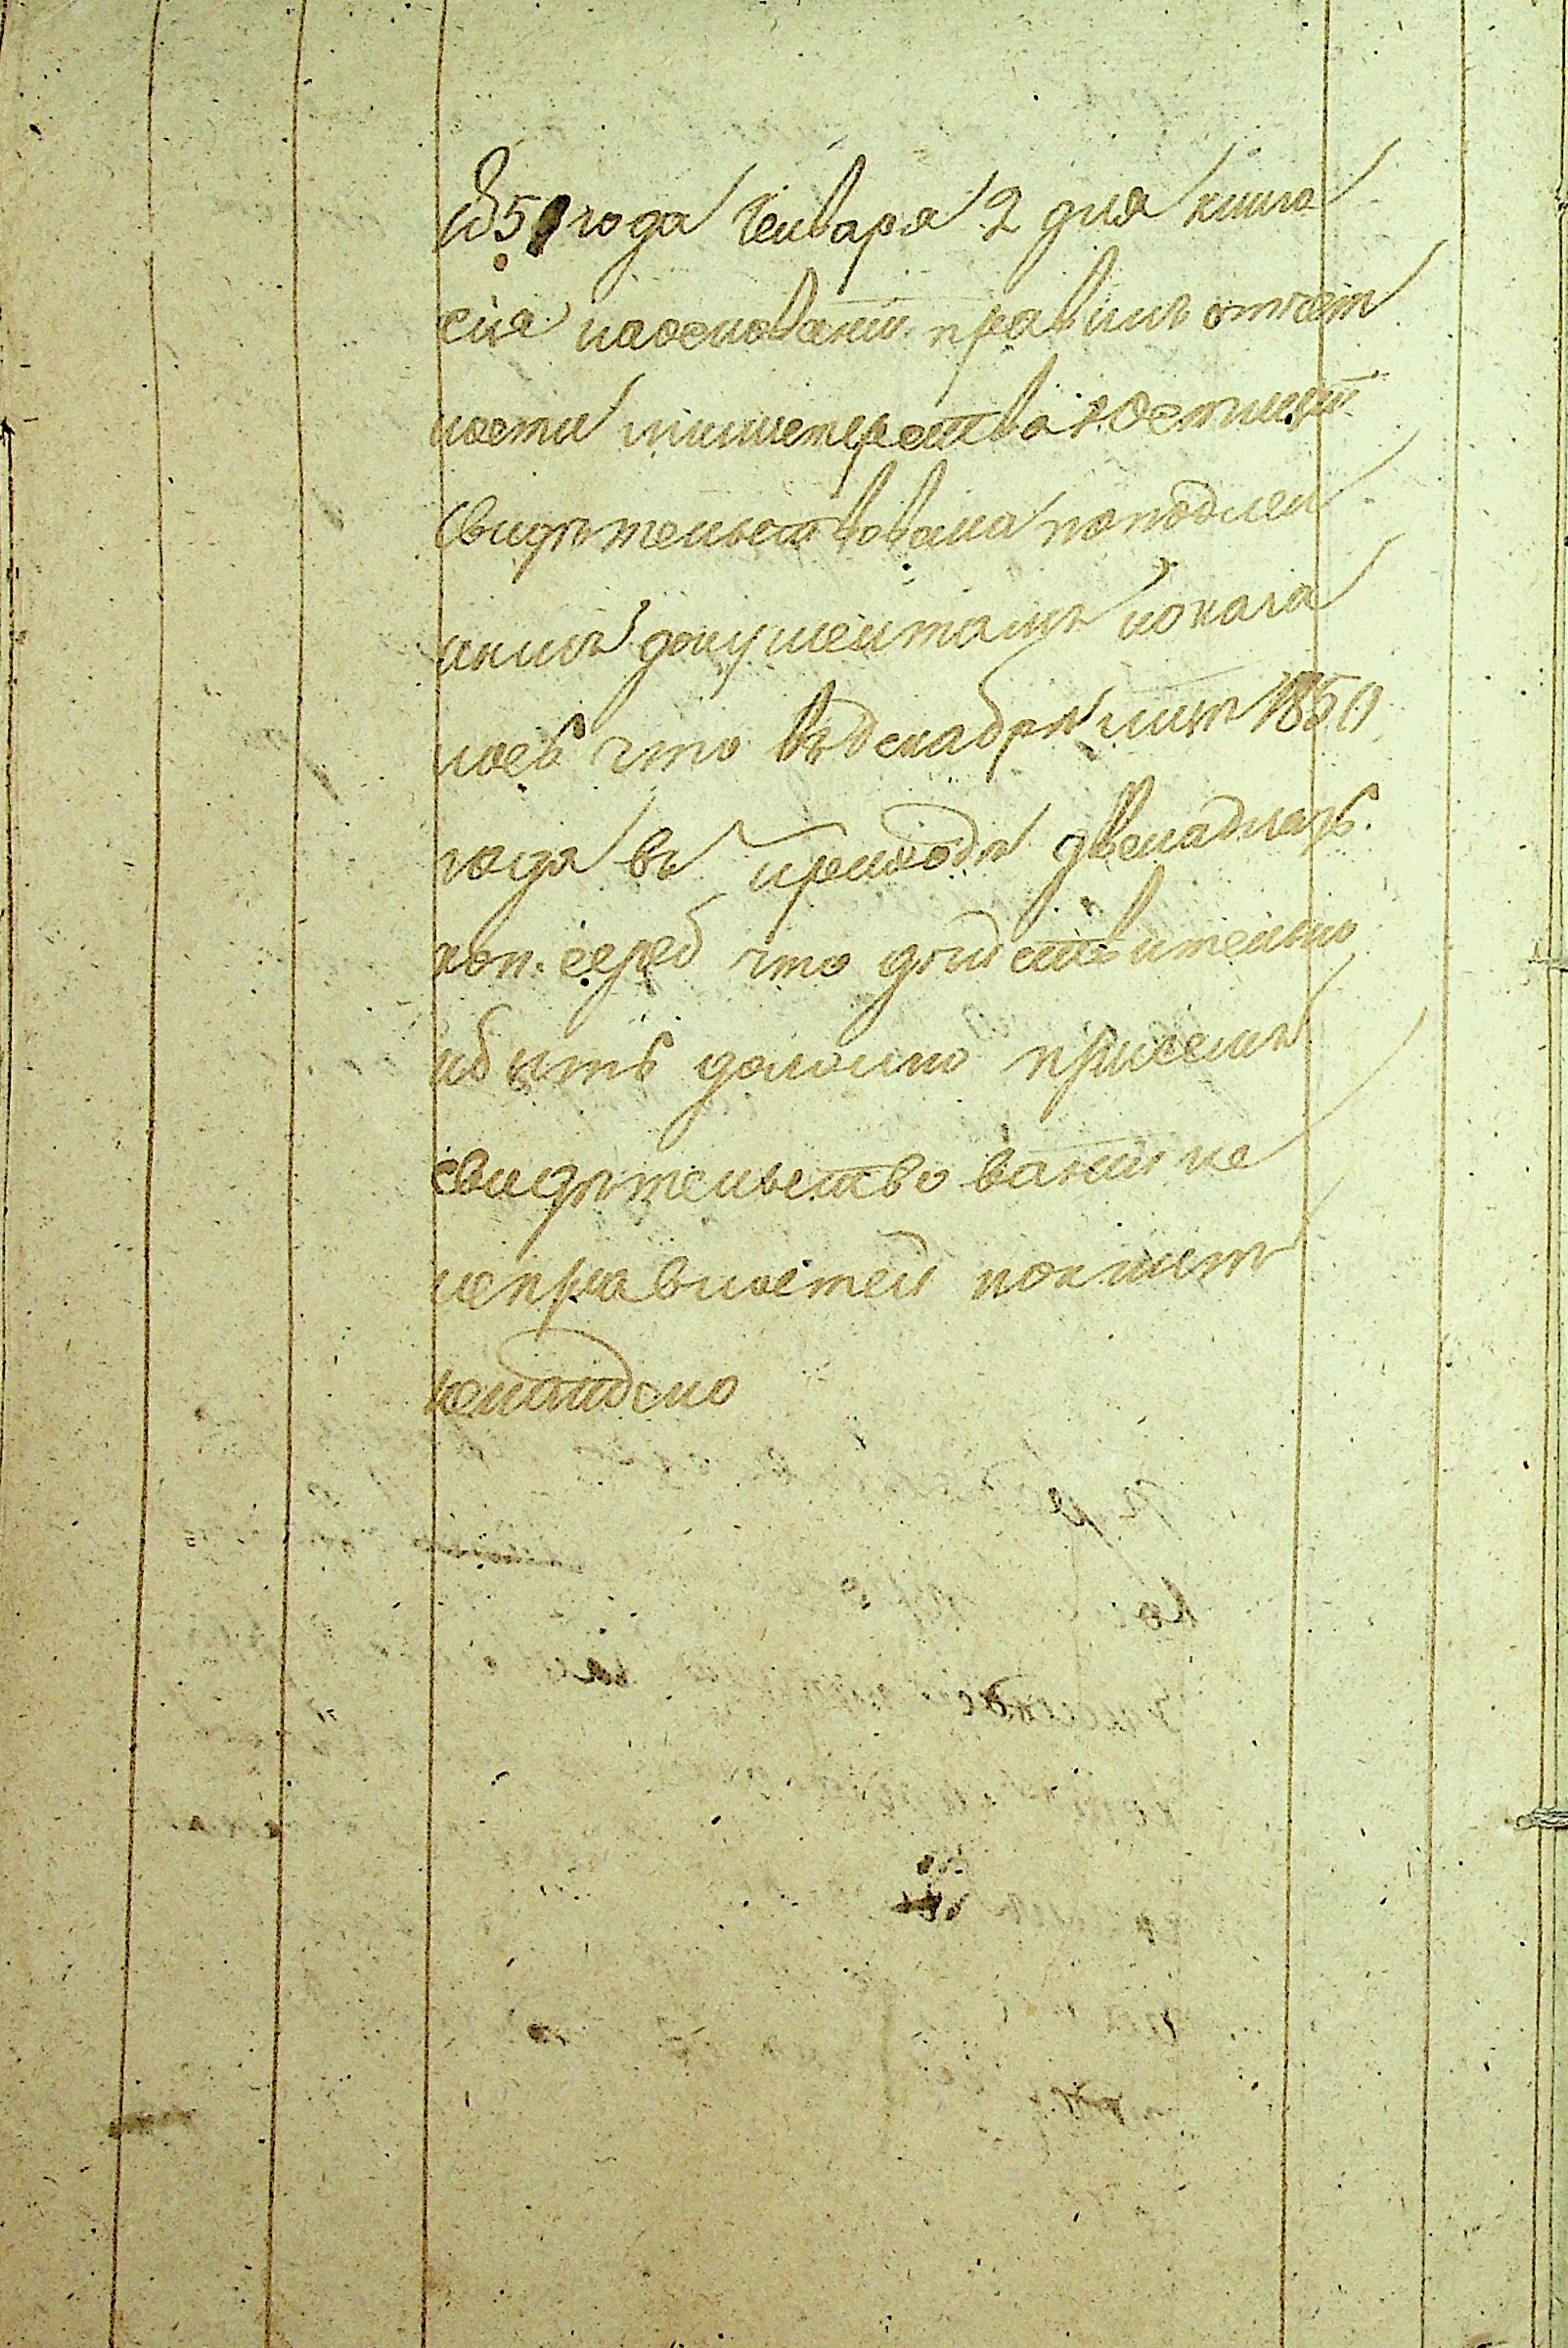 1851 года Генваря 2 дня книга
сія наосновании правилъ отчет
ности министерства Юстиции
свидѣтельствована пополнен
нымъ документамъ иокaза
лось что въдекабрѣ мцѣ 1850
года въ приходѣ двенадцать
коп. сереб что дѣйствительно
ибыть должно присемъ
свидѣтельствовании не
исправностей покниге
ненайдено